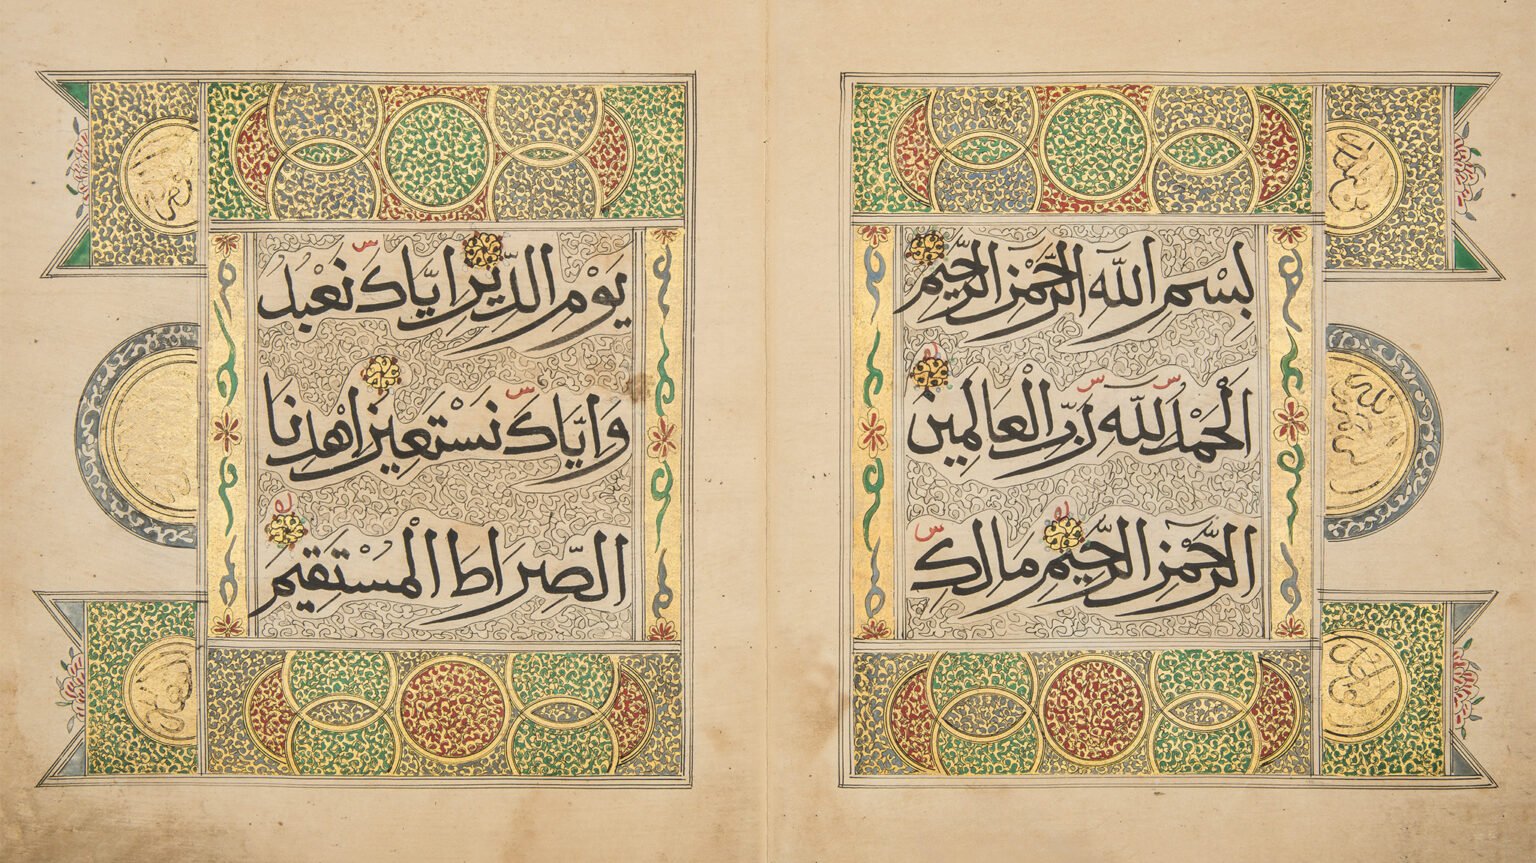 بِسْمِ اللّٰه الرَّحْمٰن الرَّحِيم
الْحَمْدُ لِلّٰه رَبِّ الْعَالَمِين
الرَّحْمٰن الرَّحِيم مَالِكِ
يَوْمِ الدِّين اِيَّاكَ نَعْبُدُ
وَاِيَّاكَ نَسْتَعِين اهْدِنَا
الصِّرَاطَ الْمُسْتَقِيم